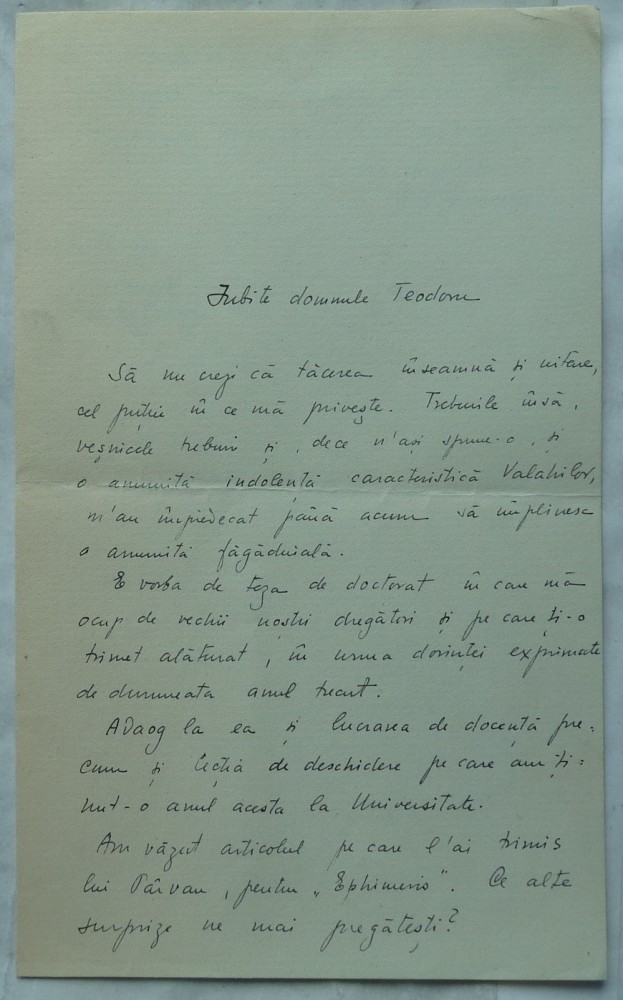 Iubite domnule Teodoru
Să nu crezi că tăcerea înseamnă și uitare,
cel puțin în ce mă privește. Treburile însă,
veșnicele treburi și, dece n'ași spune-o, și
o anumită indolență caracteristică Valahilor,
m'au împiedecat până acum să împlinesc
o anumită făgăduială.
E vorba de teza de doctorat în care mă
ocup de vechii noștri dregători și pe care ți-o
trimet alăturat, în urma dorinței exprimate
de dumneata anul trecut.
Adaog la ea și lucrarea de docență pre=
cum și lecția de deschidere pe care am ți=
nut-o anul acesta la Universitate.
Am văzut articolul pe care l'ai trimis
lui Pârvan, pentru „Ephimeris". Ce alte
surprize ne mai pregătești?